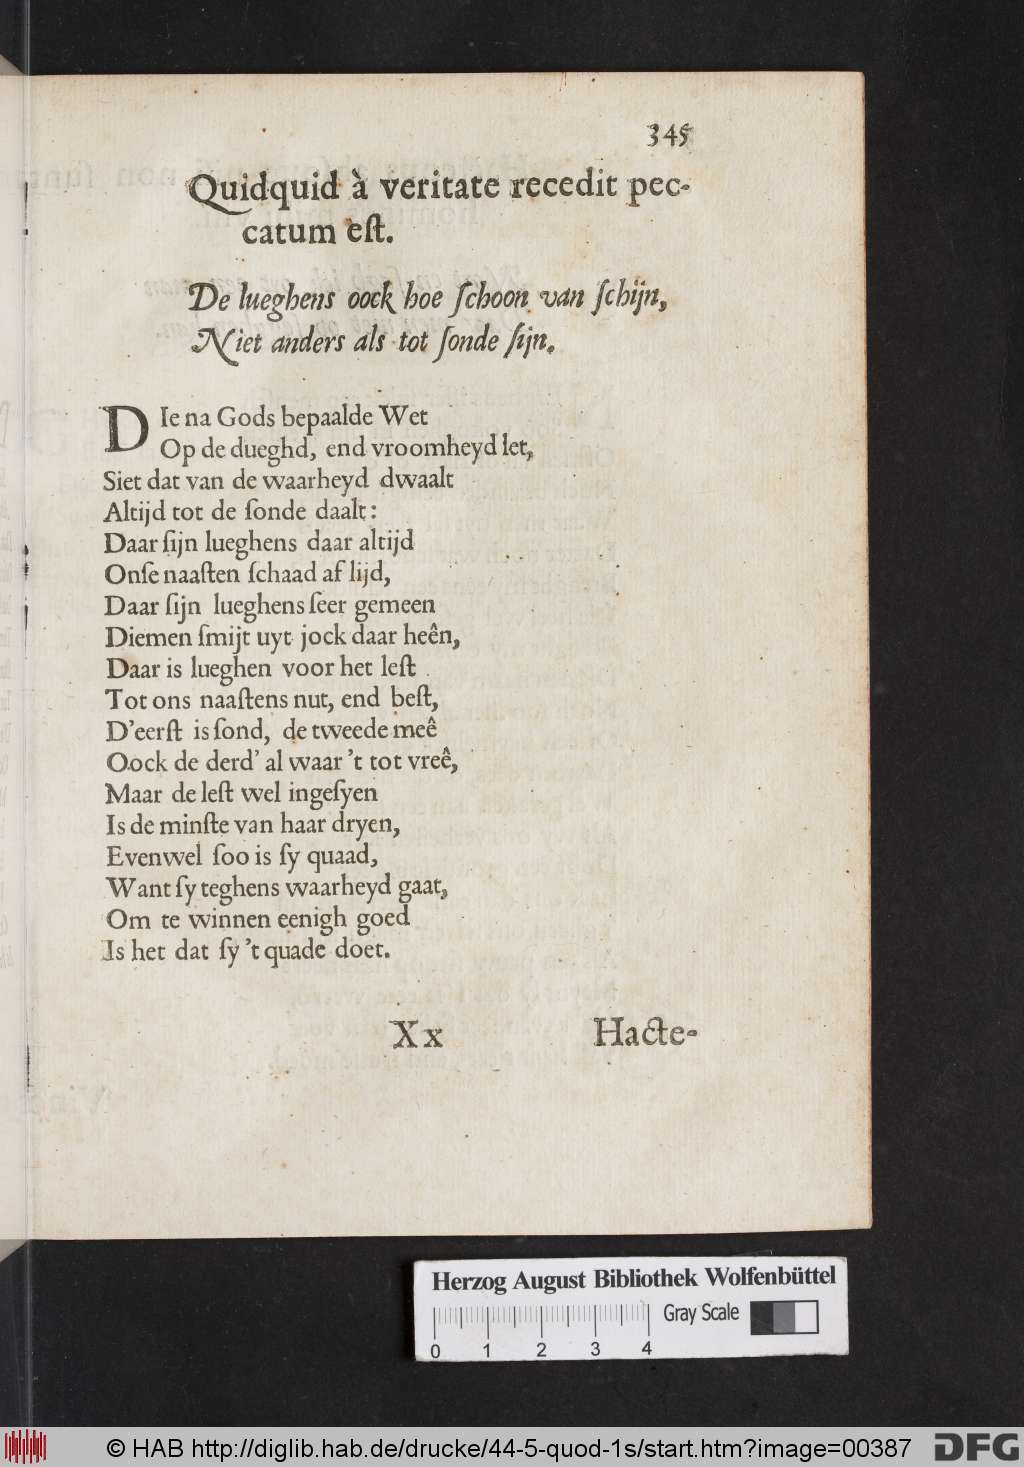 345
Quidquid à veritate recedit pec-
catum eſt.
De lueghens oock hoe ſchoon van ſchijn,
Niet anders als tot ſonde ſijn.
DIe na Gods bepaalde Wet
Op de dueghd, end vroomheyd let,
Siet dat van de waarheyd dwaalt
Altijd tot de ſonde daalt:
Daar ſijn lueghens daar altijd
Onſe naaſten ſchaad af lijd,
Daar ſijn lueghens ſeer gemeen
Diemen ſmijt uyt jock daar heên,
Daar is lueghen voor het leſt
Tot ons naaſtens nut, end beſt,
D'eerſt is ſond, de tweede meê
Oock de derd' al waar 't tot vreê,
Maar de leſt wel ingeſyen
Is de minſte van haar dryen,
Evenwel ſoo is ſy quaad,
Want ſy teghens waarheyd gaat,
Om te winnen eenigh goed
Is het dat ſy 't quade doet.
Xx Hacte-
Herzog August Bibliothek Wolfenbüttel
Gray Scale
0 1 2 3 4
© HAB http://diglib.hab.de/drucke/44-5-quod-1s/start.htm?image=00387
DFG